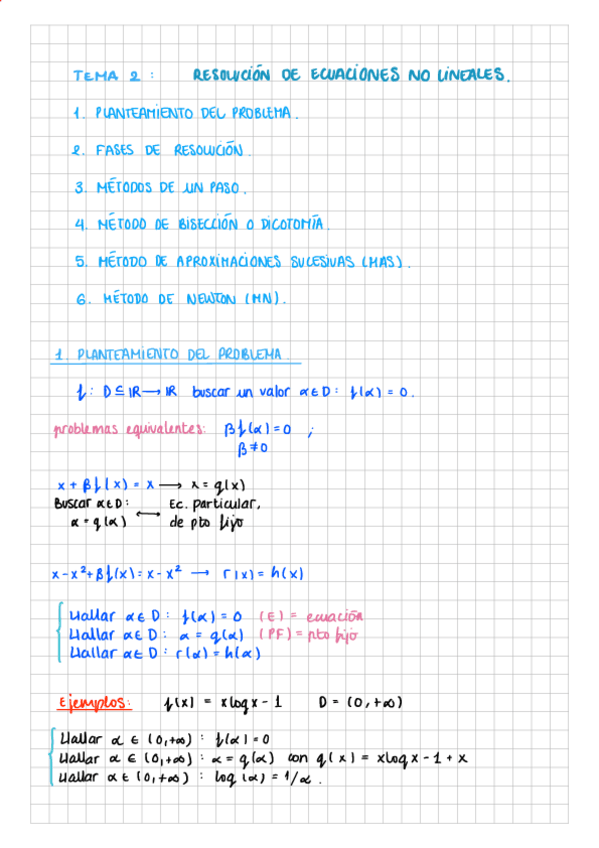 TEMA 2 : RESOLUCIÓN DE ECUACIONES NO LINEALES.
1. PLANTEAMIENTO DEL PROBLEMA.
2. FASES DE RESOLUCIÓN.
3. MÉTODOS DE UN PASO.
4. MÉTODO DE BISECCIÓN O DICOTOMÍA.
5. MÉTODO DE APROXIMACIONES SUCESIVAS (MAS).
6. MÉTODO DE NEWTON (MN).
1. PLANTEAMIENTO DEL PROBLEMA.
f: D ⊆ IR → IR buscar un valor α ∈ D: f(α) = 0.
problemas equivalentes: β f(α) = 0 ;
β ≠ 0
x + β f(x) = x → x = g(x)
Buscar α ∈ D: ↔ Ec. particular,
α = g(α) de pto fijo
x - x² + β f(x) = x - x² → r(x) = h(x)
Hallar α ∈ D: f(α) = 0 (E) = ecuación
Hallar α ∈ D: α = g(α) (PF) = pto fijo
Hallar α ∈ D: r(α) = h(α)
Ejemplos: f(x) = x log x - 1 D = (0, +∞)
Hallar α ∈ (0, +∞) : f(α) = 0
Hallar α ∈ (0, +∞) : α = g(α) con g(x) = x log x - 1 + x
Hallar α ∈ (0, +∞) : log (α) = 1/α.